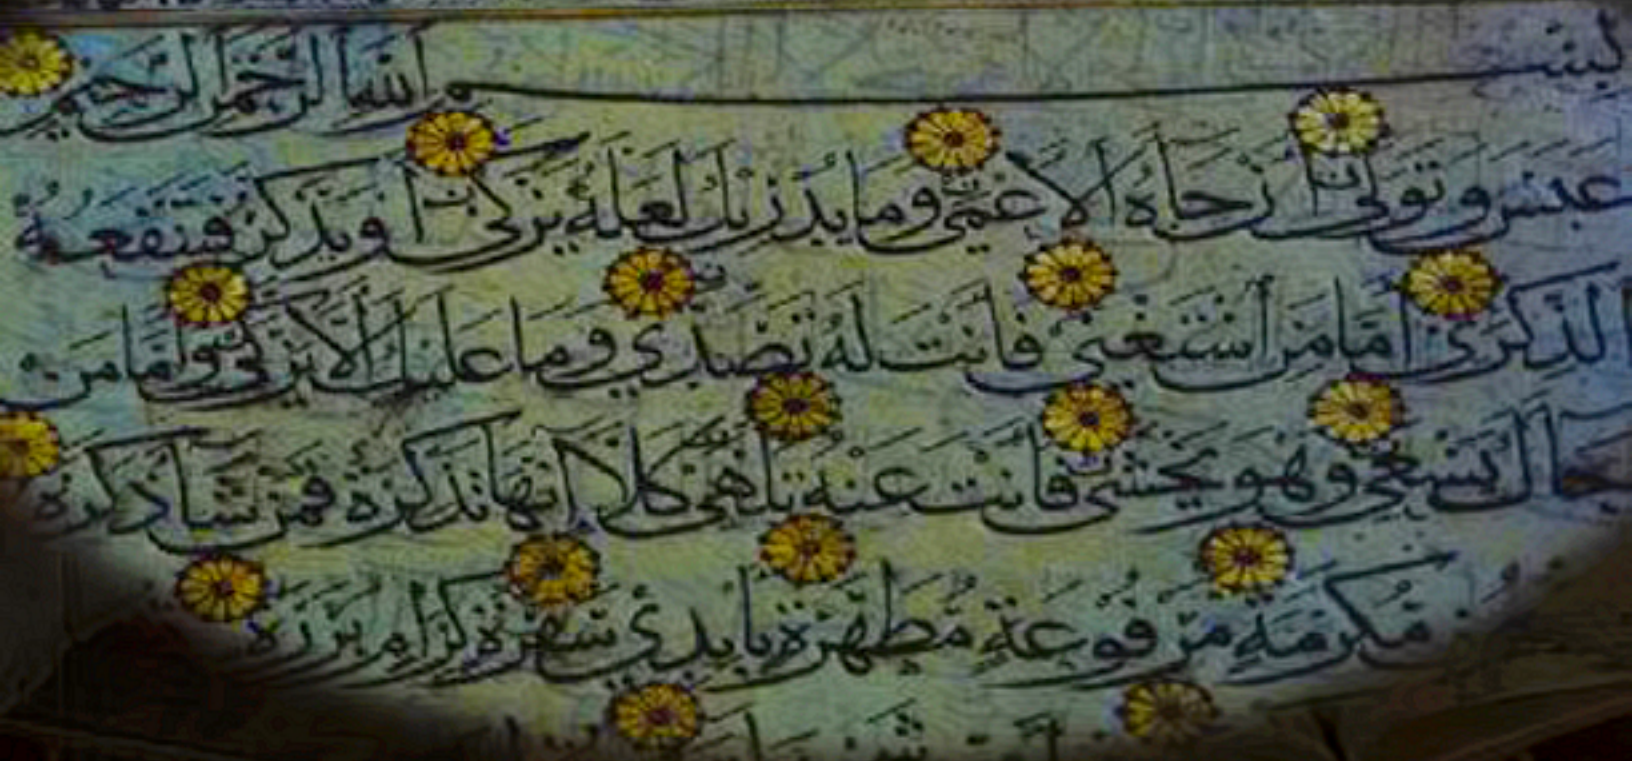 بسم الله الرحمن الرحيم
عبس وتولى ان جاه الاعمى وما يدريك لعله يزكى او يذكر فتنفعه
الذكرى اما من استغنى فانت له تصدى وما عليك الا يزكى واما من
جاك يسعى وهو يخشى فانت عنه تلهى كلا انها تذكرة فمن شا ذكره
مكرمة مرفوعة مطهرة بايدي سفرة كرام بررة